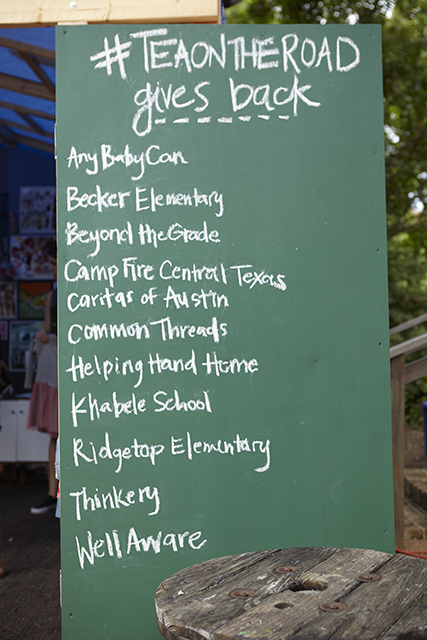 #TEAONTHEROAD
gives back
Any Baby Can
Becker Elementary
Beyond the Grade
Camp Fire Central Texas
Caritas of Austin
Common Threads
Helping Hand Home
Khabele School
Ridgetop Elementary
Thinkery
Well Aware